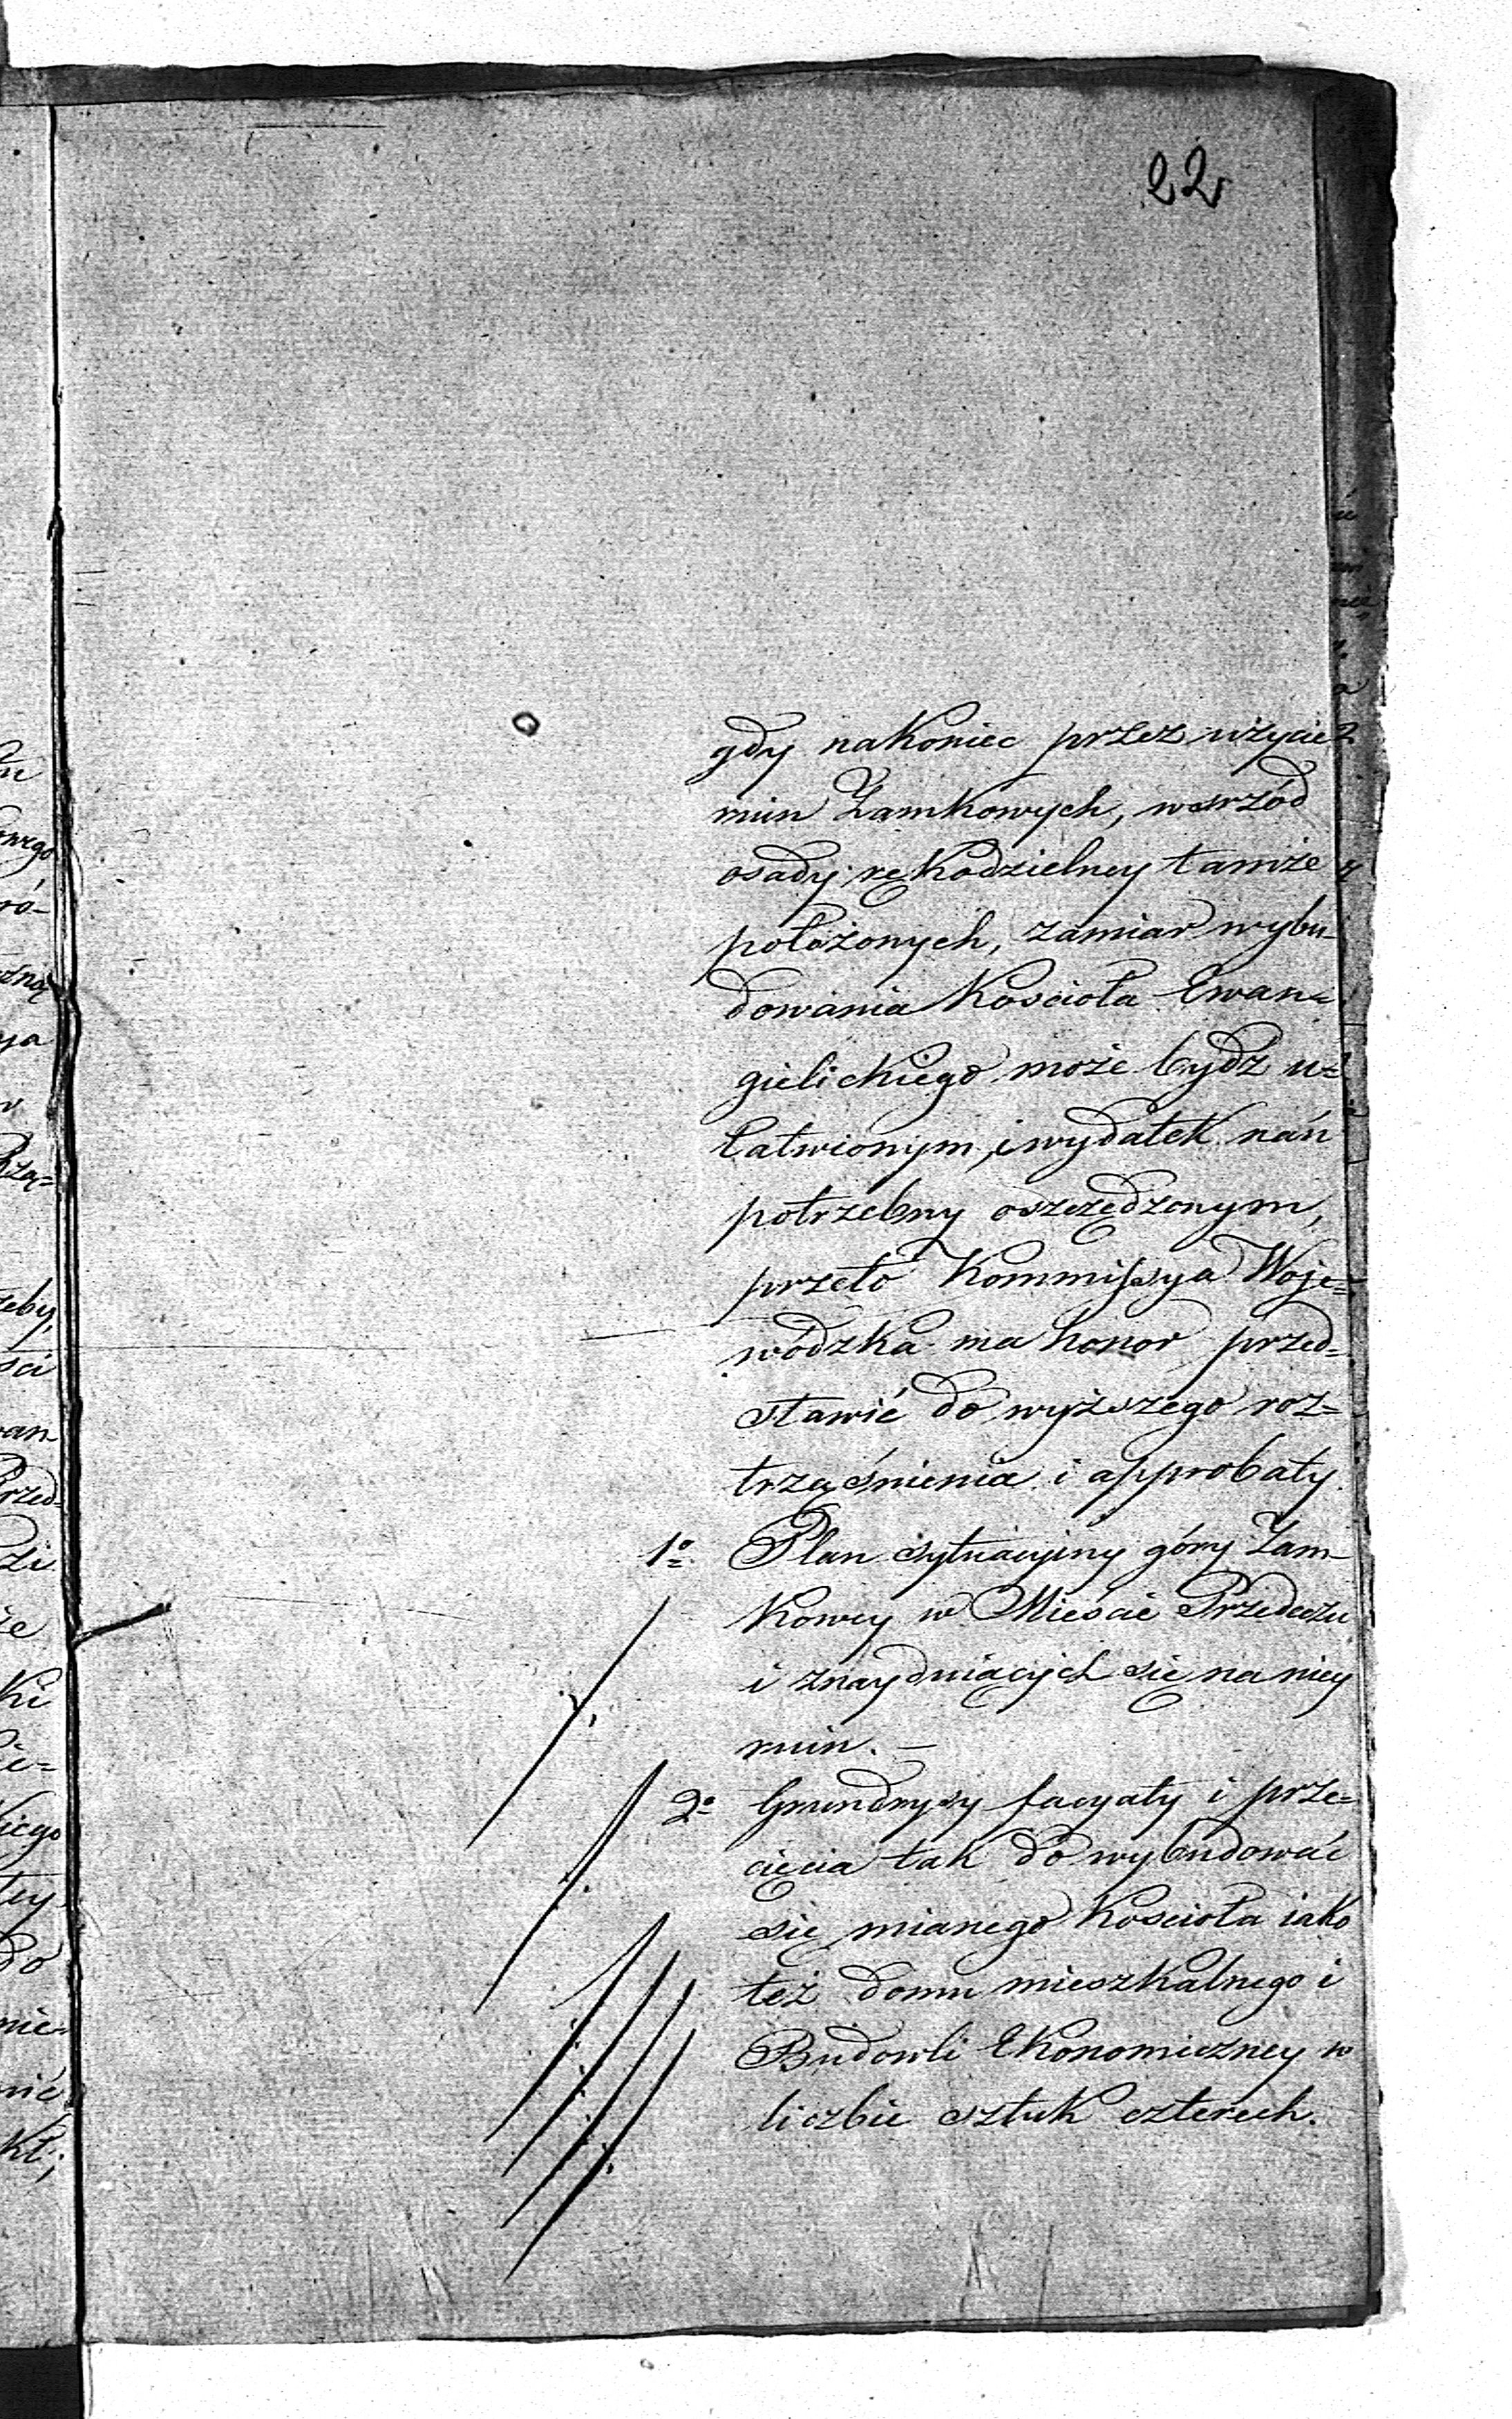 22
gdy nakoniec przez użycie
ruin Zamkowych, wsrzód
osady rękodzielney tamże
położonych, zamiar wybu-
dowania Kościoła Ewan=
gielickiego może bydź u=
łatwionym, i wydatek nań
potrzebny oszczędzonym,
przeto Kommissya Woje=
wódzka ma honor przed=
stawić do wyższego roz=
trząśnienia i approbaty.
1o Plan sytuacyjny góry Zam-
kowey w Miescie Przedeczu
i znayduiących się na niey
ruin. —
2o Grundrysy facyaty i prze=
cięcia tak do wybudować
się mianego Kościoła iako
też domu mieszkalnego i
Budowli Ekonomiczney w
liczbie sztuk czterech.